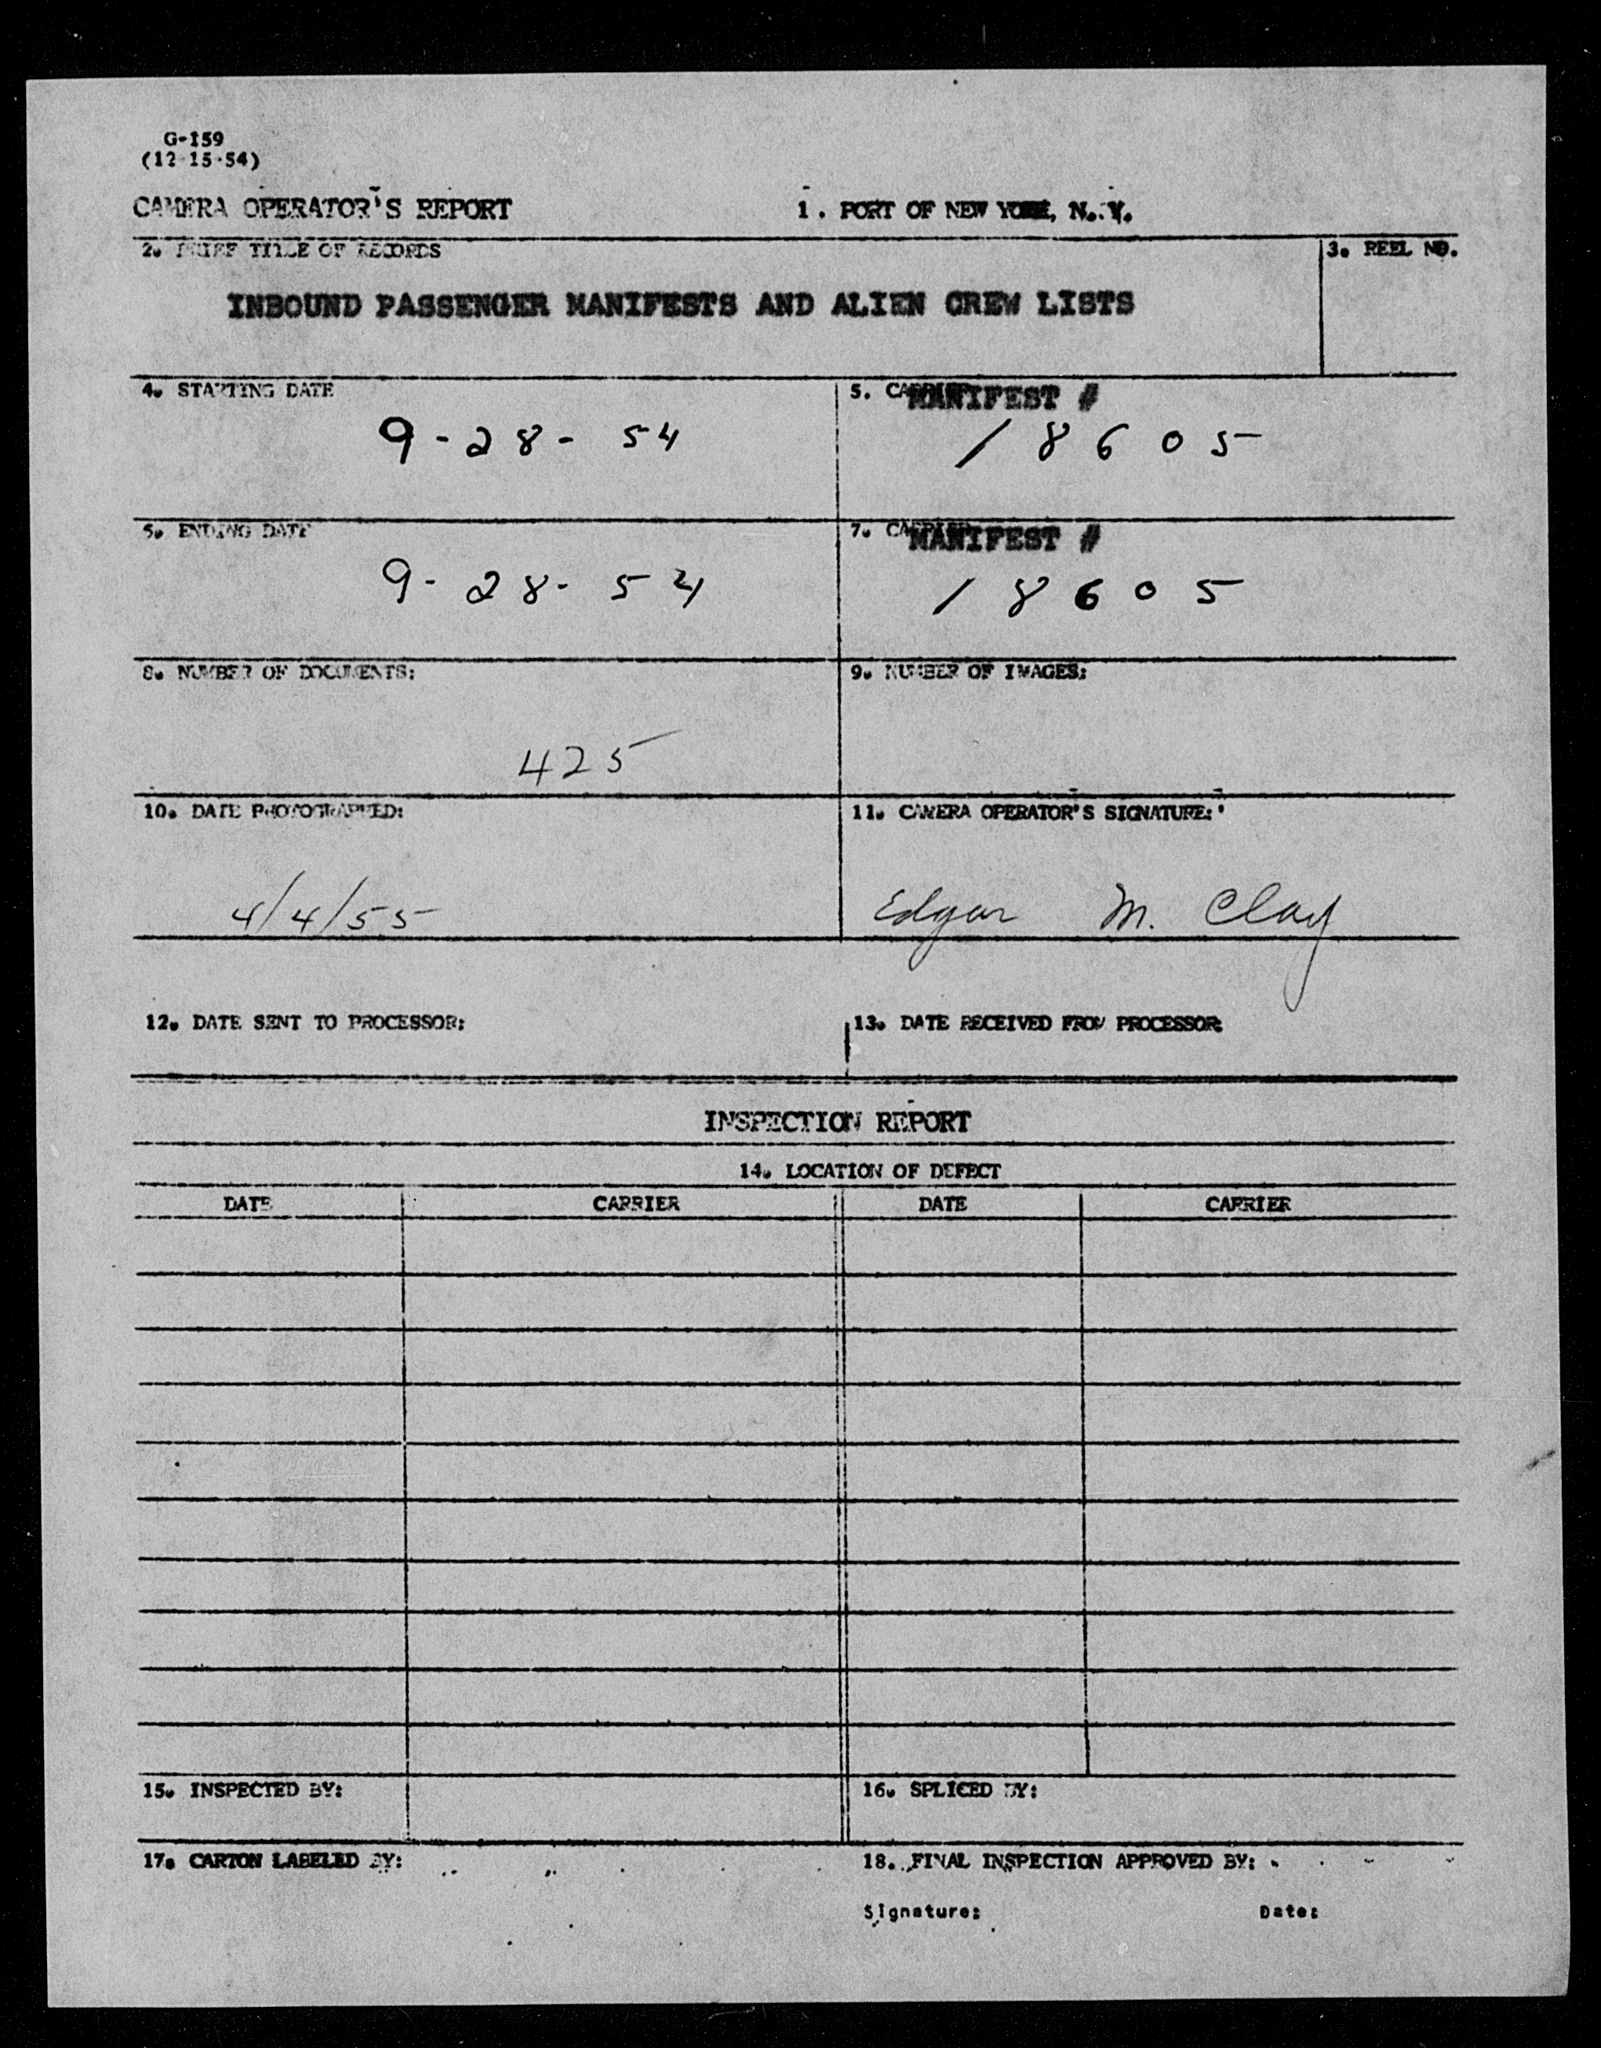 G-159
(12-15-54)
CAMERA OPERATOR'S REPORT
1. PORT OF NEW YORK, N. Y.
2. BRIEF TITLE OF RECORDS
3. REEL NO.
INBOUND PASSENGER MANIFESTS AND ALIEN CREW LISTS
4. STARTING DATE
5. CARRIER
MANIFEST #
9-28-54
18605
5. ENDING DATE
7. CARRIER
MANIFEST #
9-28-54
18605
8. NUMBER OF DOCUMENTS:
9. NUMBER OF IMAGES:
425
10. DATE PHOTOGRAPHED:
11. CAMERA OPERATOR'S SIGNATURE:
4/4/55
Edgar M. Clay
12. DATE SENT TO PROCESSOR:
13. DATE RECEIVED FROM PROCESSOR:
INSPECTION REPORT
14. LOCATION OF DEFECT
DATE CARRIER DATE CARRIER
15. INSPECTED BY:
16. SPLICED BY:
17. CARTON LABELED BY:
18. FINAL INSPECTION APPROVED BY:
Signature: Date: